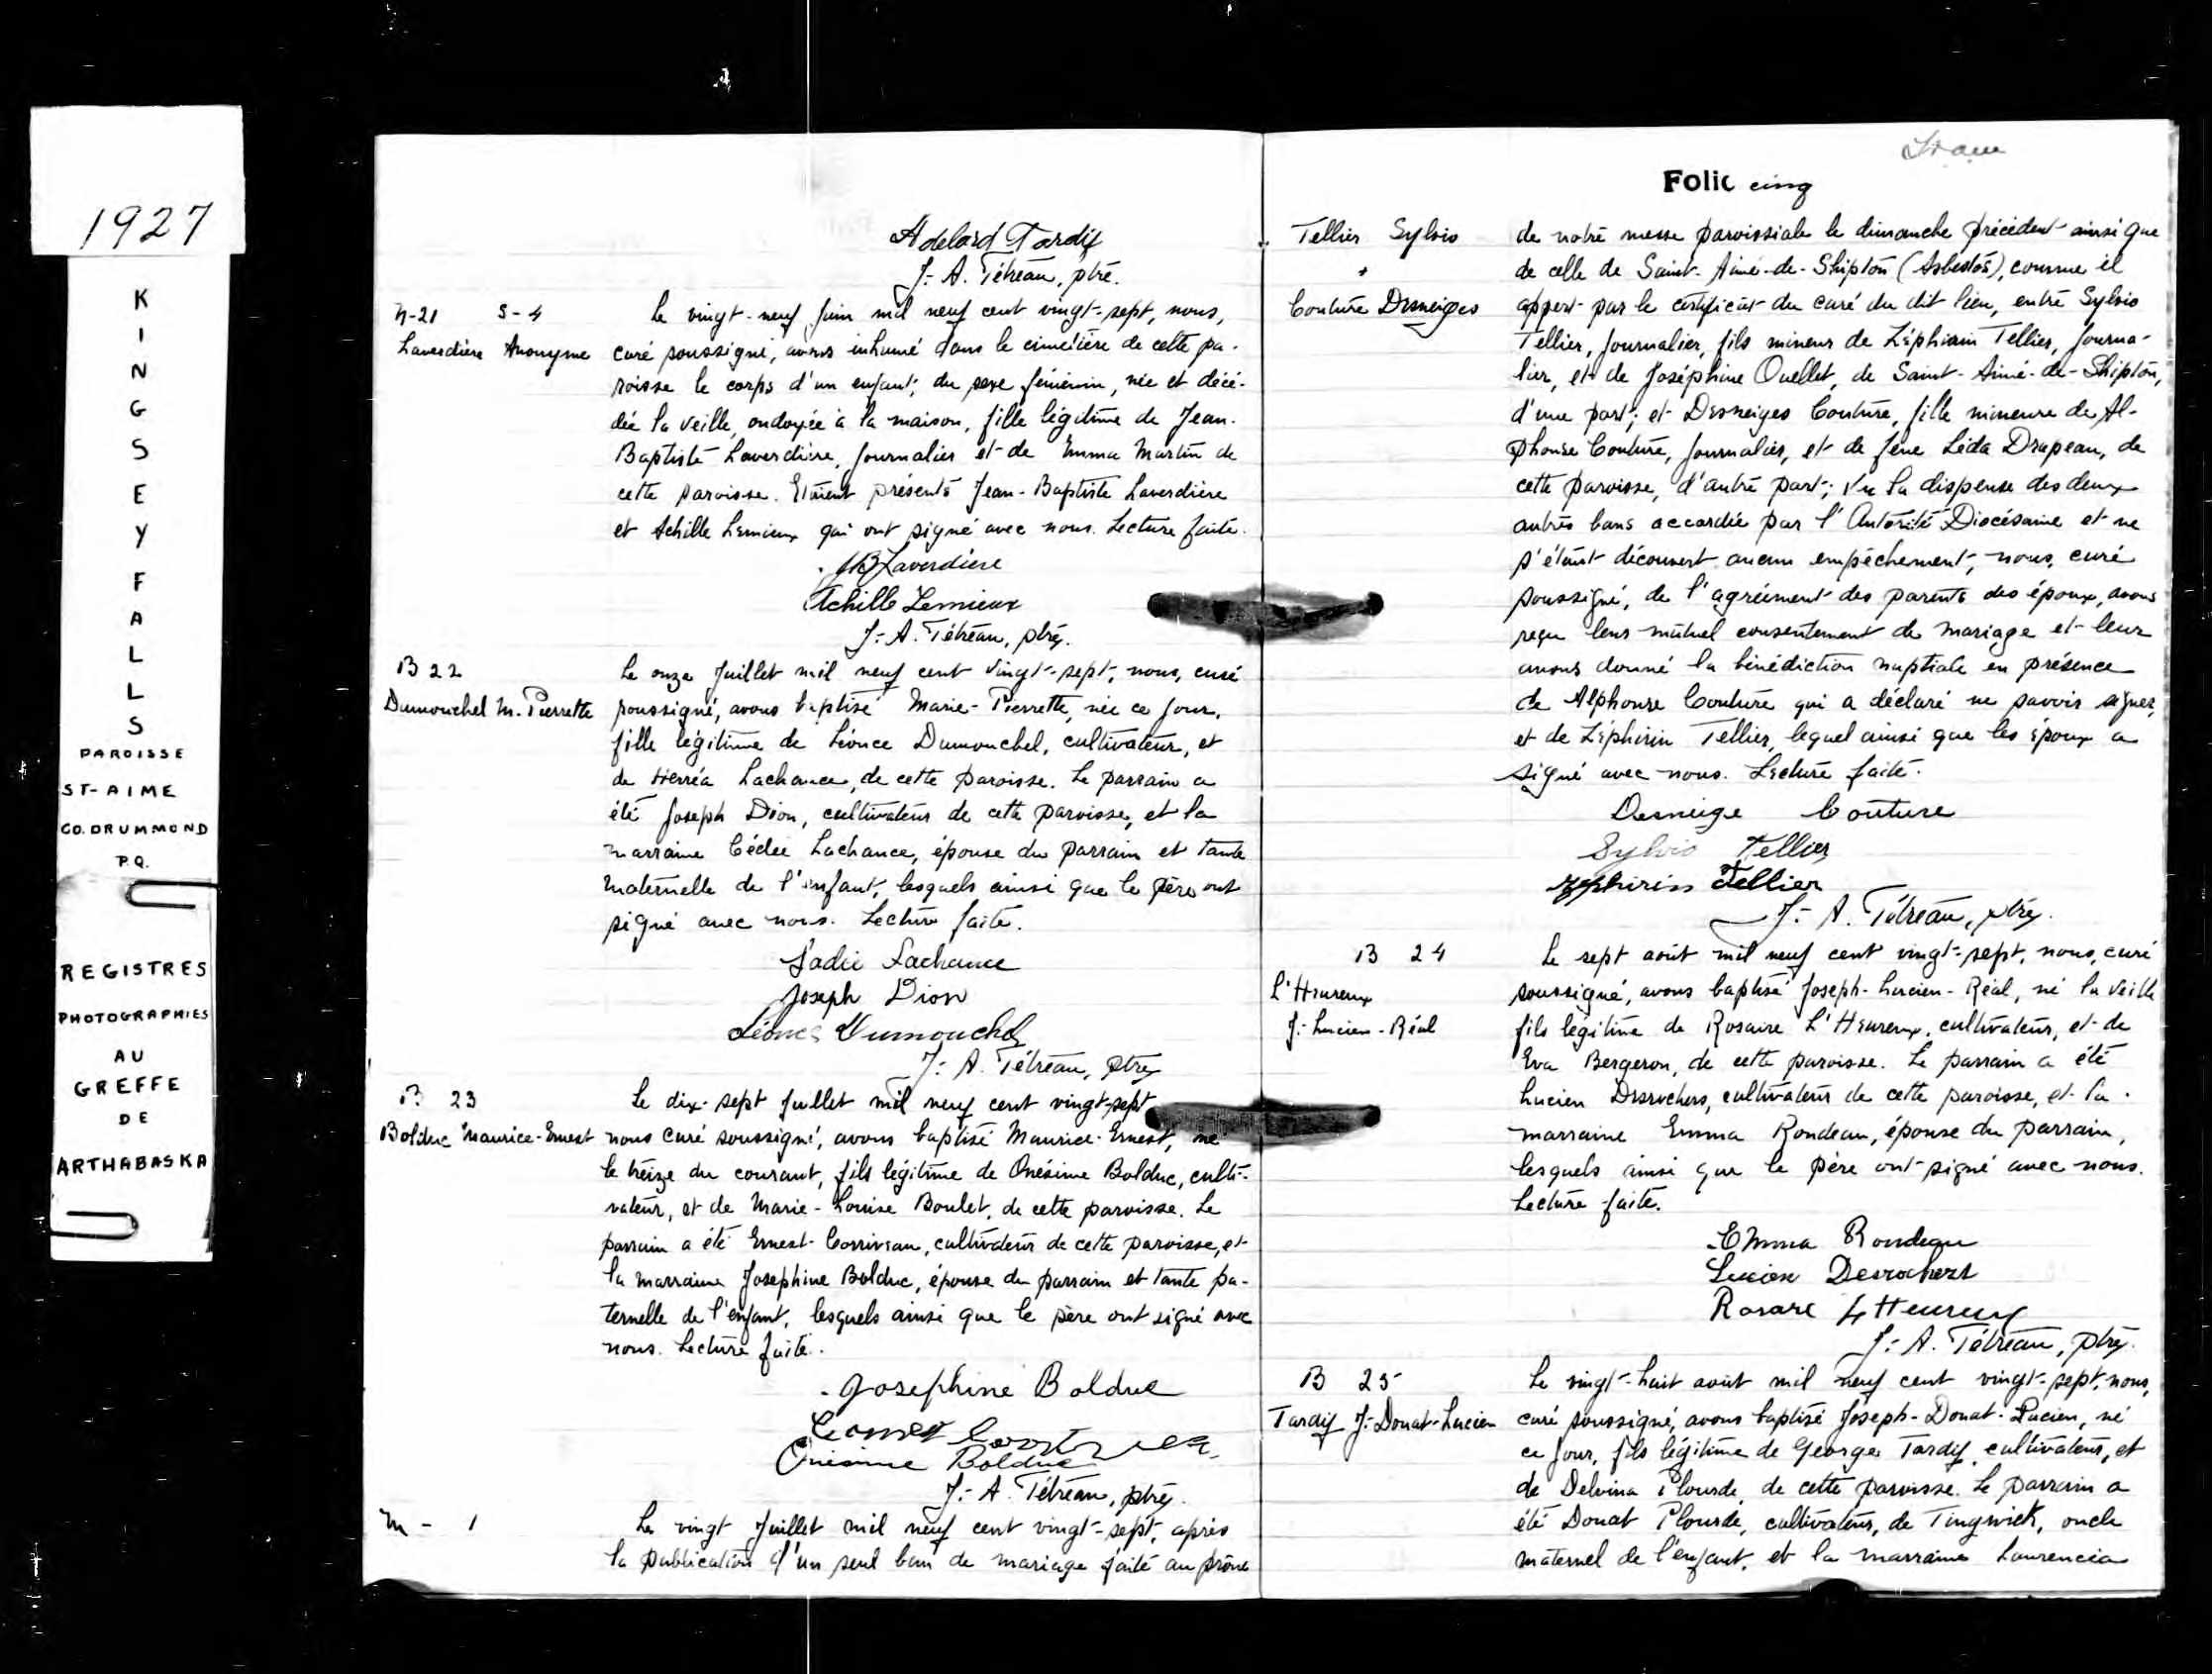 1927
K
I
N
G
S
E
Y
F
A
L
L
S
PAROISSE
ST-AIME
CO. DRUMMOND
P.Q.
REGISTRES
PHOTOGRAPHIES
AU
GREFFE
DE
ARTHABASKA
Adelard Tardif
J.-A. Tétreau, ptre.
N-21 S-4
Laverdière Anonyme
Le vingt-neuf juin mil neuf cent vingt-sept, nous,
curé soussigné, avons inhumé dans le cimetière de cette pa-
roisse le corps d'un enfant, du sexe féminin, née et décé-
dée la veille, ondoyée à la maison, fille légitime de Jean-
Baptiste Laverdière, journalier et de Emma Martin de
cette paroisse. Etaient présents Jean-Baptiste Laverdière
et Achille Lemieux qui ont signé avec nous. Lecture faite.
JB Laverdiere
Achille Lemieux
J.-A. Tétreau, ptre.
B 22
Dumouchel M.-Pierrette
Le onze Juillet mil neuf cent vingt-sept, nous, curé
soussigné, avons baptisé Marie-Pierrette, née ce jour,
fille légitime de Léonce Dumouchel, cultivateur, et
de Lachance, de cette paroisse. Le parrain a
été Joseph Dion, cultivateur de cette paroisse, et la
marraine Lachance, épouse du parrain et tante
maternelle de l'enfant, lesquels ainsi que le père ont
signé avec nous. Lecture faite.
Lachance
Joseph Dion
Léonce Dumouchel
J.-A. Tétreau, ptre
B 23
Bolduc Maurice-Ernest
Le dix-sept Juillet mil neuf cent vingt-sept
nous curé soussigné, avons baptisé Maurice-Ernest, né
le treize du courant, fils légitime de Onésime Bolduc, culti-
vateur, et de Marie-Louise Boulet, de cette paroisse. Le
parrain a été Ernest Corriveau, cultivateur de cette paroisse, et
la marraine Josephine Bolduc, épouse du parrain et tante pa-
ternelle de l'enfant, lesquels ainsi que le père ont signé avec
nous. Lecture faite.
Josephine Bolduc
Onesime Bolduc
J.-A. Tétreau, ptre.
M - 1
Le vingt Juillet mil neuf cent vingt-sept, après
la publication d'un seul ban de mariage faite au prône
Folio cinq
Tellier Sylvio
+
Couture Desneiges
de notre messe paroissiale le dimanche précédent ainsi que
de celle de Saint-Aimé-de-Shipton (Asbestos), comme il
appert par le certificat du curé du dit lieu, entre Sylvio
Tellier, Journalier, fils mineur de Zéphirin Tellier, Journa-
lier, et de Joséphine Ouellet, de Saint-Aimé-de-Shipton,
d'une part; et Desneiges Couture, fille mineure de Al-
phonse Couture, Journalier, et de feue Léda Drapeau, de
cette paroisse, d'autre part; Vu la dispense des deux
autres bans accordée par l'Autorité Diocésaine et ne
s'étant découvert aucun empêchement, nous, curé
soussigné, de l'agrément des parents des époux, avons
reçu leur mutuel consentement de mariage et leur
avons donné la bénédiction nuptiale en présence
de Alphonse Couture qui a déclaré ne savoir signer,
et de Zéphirin Tellier, lequel ainsi que les époux a
signé avec nous. Lecture faite.
Desneige Couture
Sylvio Tellier
Zephirin Tellier
J.-A. Tétreau, ptre.
B 24
L'Heureux
J.-Lucien-Réal
Le sept août mil neuf cent vingt-sept, nous, curé
soussigné, avons baptisé Joseph-Lucien-Réal, né la veille
fils légitime de Rosaire L'Heureux, cultivateur, et de
Eva Bergeron, de cette paroisse. Le parrain a été
Lucien Desrochers, cultivateur de cette paroisse, et la
marraine Emma Rondeau, épouse du parrain,
lesquels ainsi que le père ont signé avec nous.
Lecture faite.
Emma Rondeau
Lucien Desrochers
Rosare LHeureux
J.-A. Tétreau, ptre.
B 25
Tardif J.-Donat-Lucien
Le vingt-huit août mil neuf cent vingt-sept, nous,
curé soussigné, avons baptisé Joseph-Donat-Lucien, né
ce jour, fils légitime de George Tardif, cultivateur, et
de Delvina Plourde, de cette paroisse. Le parrain a
été Donat Plourde, cultivateur, de Tingwick, oncle
maternel de l'enfant, et la marraine Laurencia